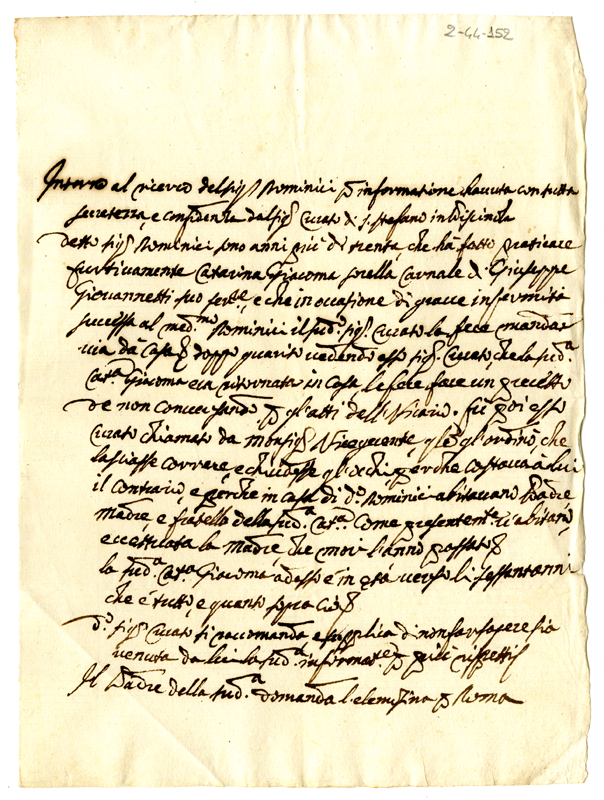 2-44-152
Intorno al ricorso del sig.r Dominici p informatione havuta con tutta
secretezza, e confidenza dal sig.r Curato di S. Stefano in
detto sig.r Dominici sono anni più di trenta, che hà fatto praticare
furtivamente Catarina Giacoma sorella Carnale di Giuseppe
Giovannetti suo ser.re, e che in occasione di grave infermità
successa al med.mo Dominici il sud.o sig.r Curato la fece mandar
via da Casa, e doppo guarito vedendo esso sig.r Curato che la sud.a
Cat.a Giacoma era ritornata in Casa le fece fare un precetto
de non conversando p gl'atti del Vicario. fù poi esso
Curato chiamato da Monsig.r Vicegerente, q.le gl'ordinò, che
lasciasse correre, e chiudesse gl'occhi, perche costava à lui
il contrario, e perche in Casa di d.o Dominici abitavano Padre
Madre, e fratello della sud.a Cat.a Come presentem.te vi abitano,
eccettuata la Madre, che morì l'anno passato
la sud.a Cat.a Giacoma adesso è in età verso li sessant'anni
che è tutto, e quanto sopra ciò
d.o sig.r Curato si raccomanda e supplica di non far sapere sia
venuta da lui la sud.a informat.e p più rispetti
Il Padre della sud.a domanda l'elemosina p Roma